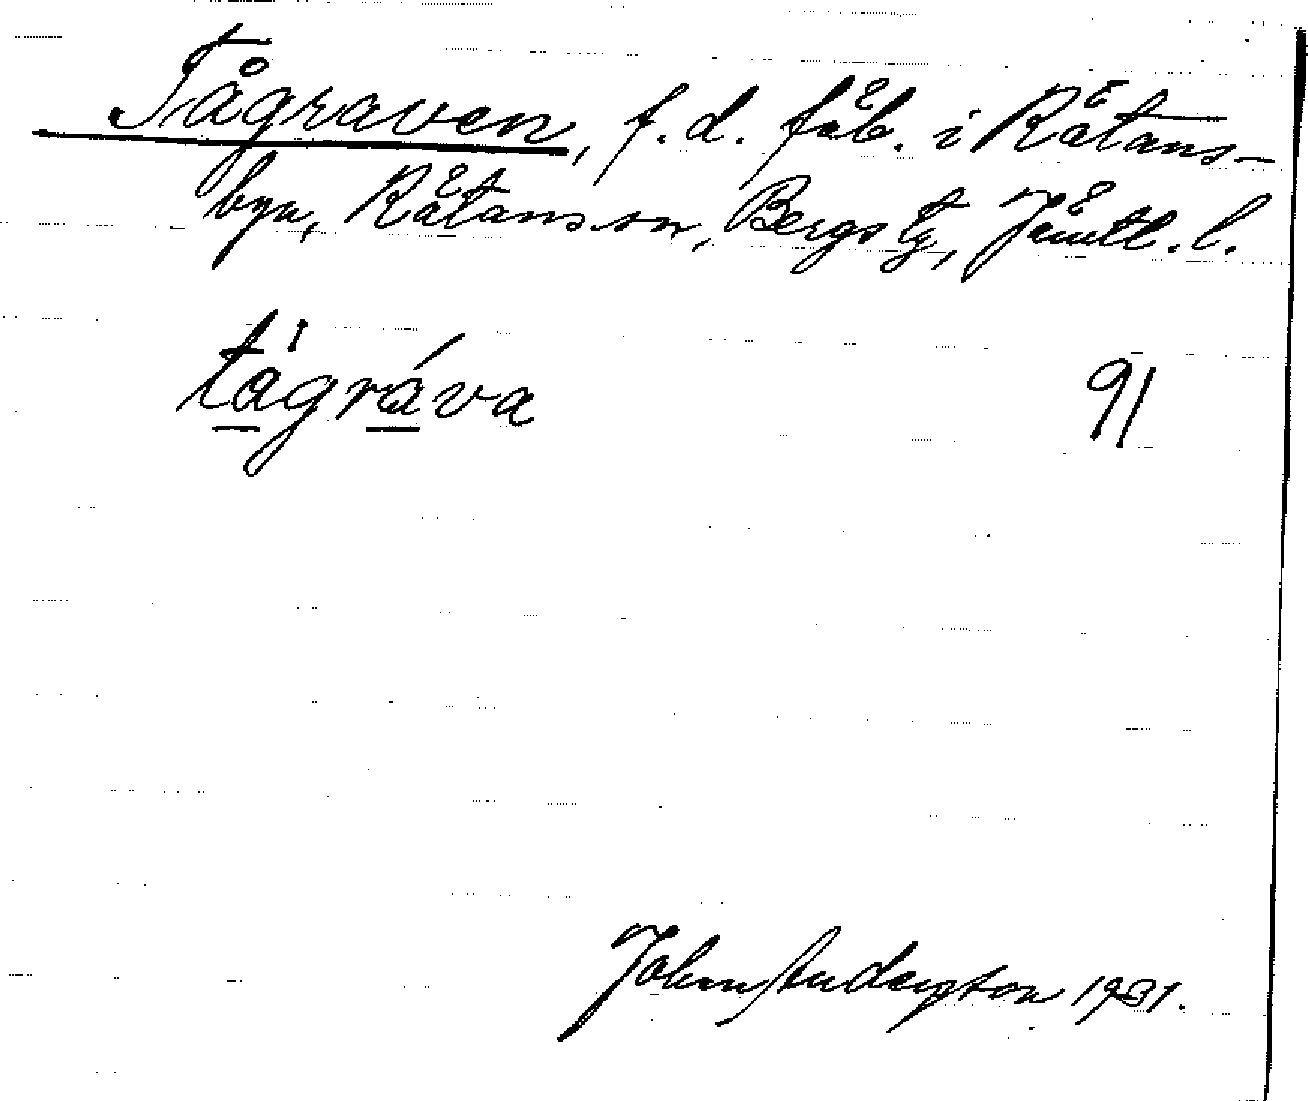 Tågraven, f.d. fäb. i Rätans-
byn, Rätans sn, Bergs tg, Jämtl. l.
tágráva 91
John Andersson 1931.